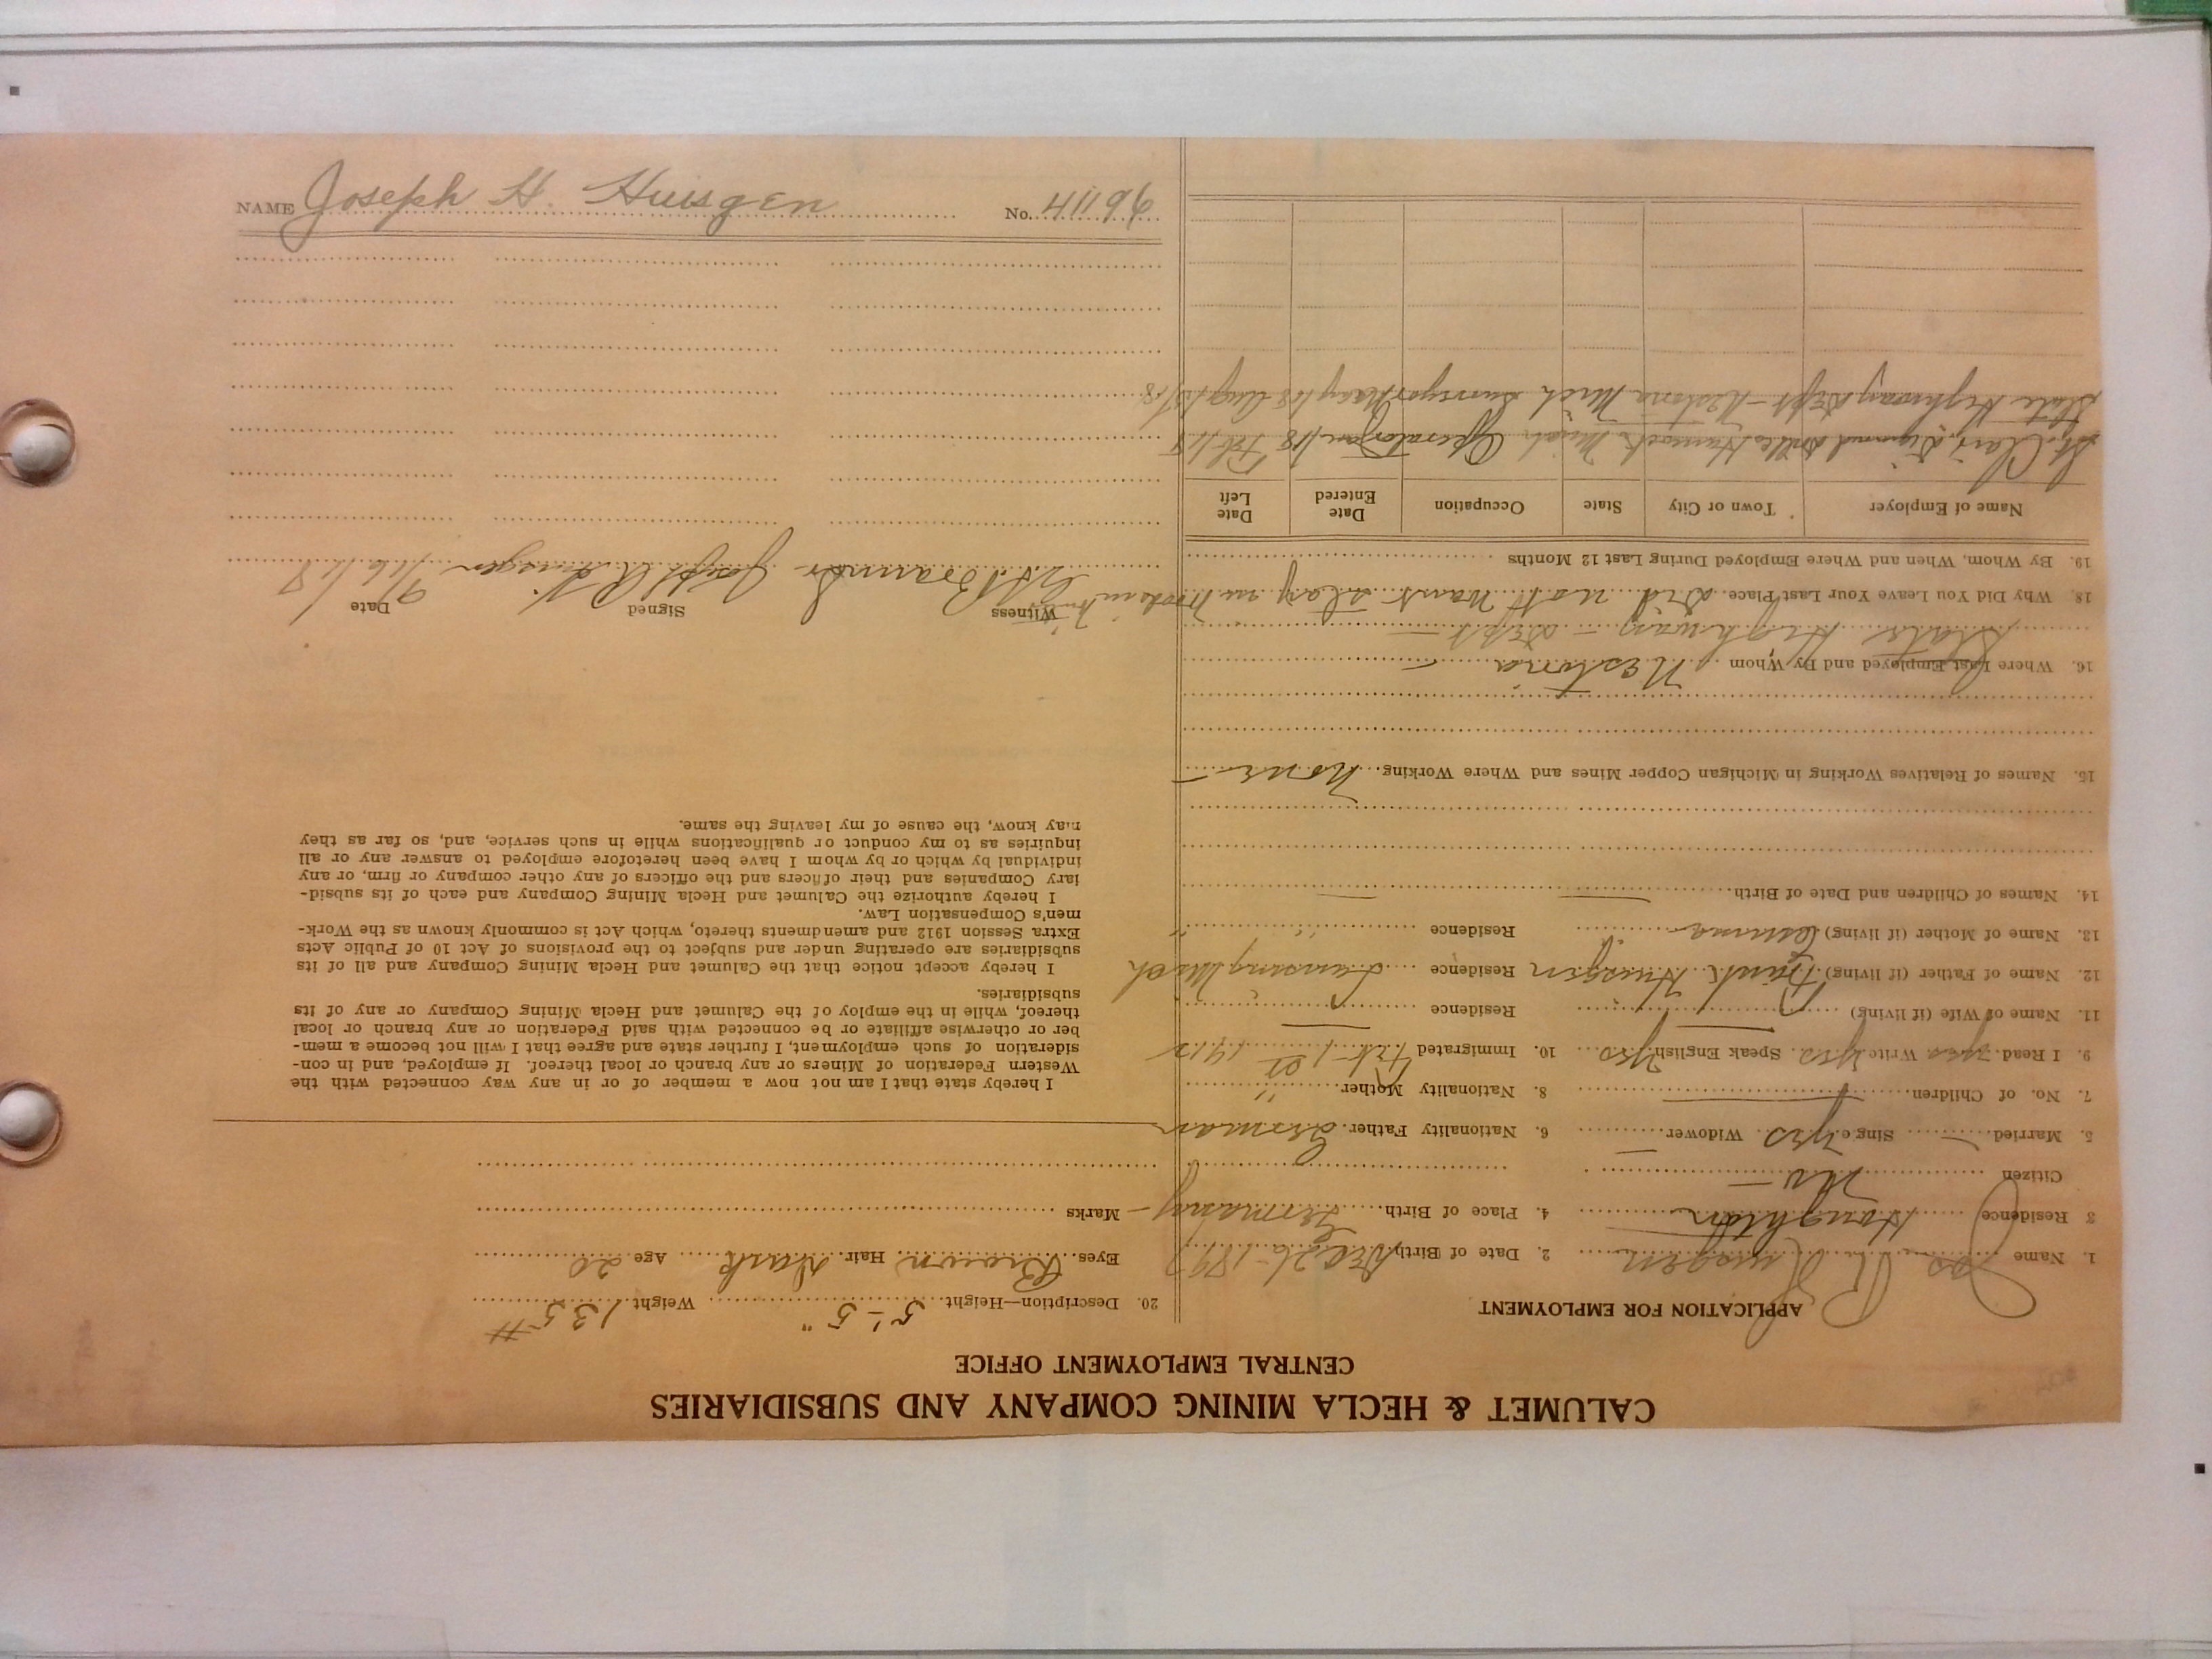 CALUMET & HECLA MINING COMPANY AND SUBSIDIARIES
CENTRAL EMPLOYMENT OFFICE
APPLICATION FOR EMPLOYMENT
1. Name Jos Huisgen 2. Date of Birth Dec 26-1897
3 Residence Houghton 4. Place of Birth Germany
Citizen No
5. Married Single yes Widower 6. Nationality Father German
7. No. of Children 8. Nationality Mother "
9. I Read yes Write yes Speak English yes 10. Immigrated Feb 1st 1912
11. Name of Wife (if living) Residence
12. Name of Father (if living) Frank Huisgen Residence Lansing Mich
13. Name of Mother (if living) Residence "
14. Names of Children and Date of Birth
15. Names of Relatives Working in Michigan Copper Mines and Where Working None
16. Where Last Employed and By Whom Nestoria
State Highway Dept
18. Why Did You Leave Your Last Place Did not want stay in
19. By Whom, When and Where Employed During Last 12 Months
Name of Employer Town or City State Occupation Date Entered Date Left
St. Clair Mich Operator Jan/18 Feb/18
State Highway Dept Nestoria Mich Surveyor May/18 Aug 18
20. Description—Height 5'-5" Weight 135#
Eyes Brown Hair Dark Age 20
Marks
I hereby state that I am not now a member of or in any way connected with the
Western Federation of Miners or any branch or local thereof. If employed, and in con-
sideration of such employment, I further state and agree that I will not become a mem-
ber or otherwise affiliate or be connected with said Federation or any branch or local
thereof, while in the employ of the Calumet and Hecla Mining Company or any of its
subsidiaries.
I hereby accept notice that the Calumet and Hecla Mining Company and all of its
subsidiaries are operating under and subject to the provisions of Act 10 of Public Acts
Extra Session 1912 and amendments thereto, which Act is commonly known as the Work-
men's Compensation Law.
I hereby authorize the Calumet and Hecla Mining Company and each of its subsid-
iary Companies and their officers and the officers of any other company or firm, or any
individual by which or by whom I have been heretofore employed to answer any or all
inquiries as to my conduct or qualifications while in such service, and, so far as they
may know, the cause of my leaving the same.
Witness Signed Date
Joseph Huisgen 9/16/18
NAME Joseph H. Huisgen No. 41196